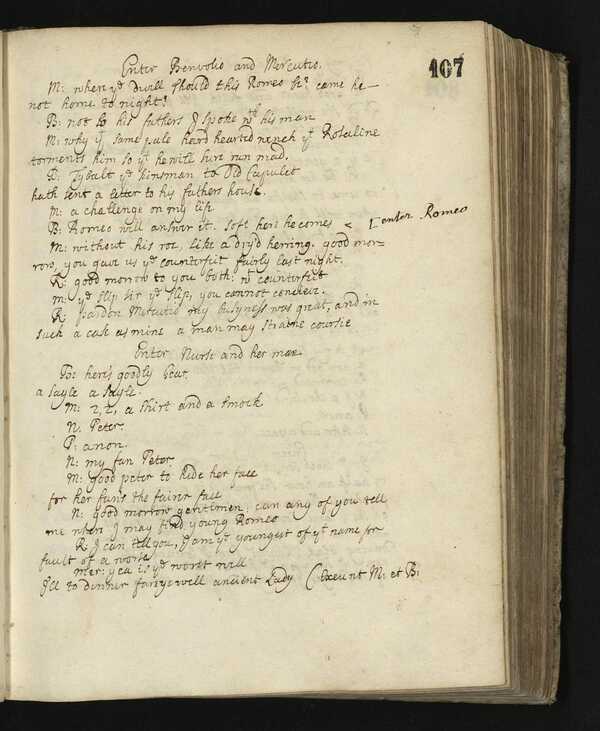 107
Enter Benvolio and Mercutio.
M: when ye Divell should this Romeo be? came he
not home to night?
B: not to his fathers I spoke wth his man
M: why yt same pale hard hearted wench yt Rosaline
torments him so yt he will sure run mad.
B: Tybalt ye kinsman to Old Capulet
hath sent a letter to his fathers house.
M: a challenge on my life
B: Romeo will answer it. soft here he comes
[enter Romeo
M: without his roe, like a dry'd herring. good mor-
row, you gave us ye counterfeit fairly last night.
R: good morrow to you both: wt counterfeit
M: ye slip sir ye slip, you cannot conceive.
R: pardon Mercutio my busyness was great, and in
such a case as mine a man may straine coursie
Enter Nurse and her man
here's goodly Gear
a sayle a sayle.
M: 2, 2, a shirt and a smock
N. Peter.
P: anon.
N: my fan Peter
M: good peter to hide her face
for her fans the fairer face
N: good morrow gentlmen, can any of you tell
me where I may find young Romeo
R: I can tell you, I am ye youngest of yt name for
fault of a worse
Mer: yea is ye worst well
I'll to dinner farewell ancient Lady (Exeunt M: et B: